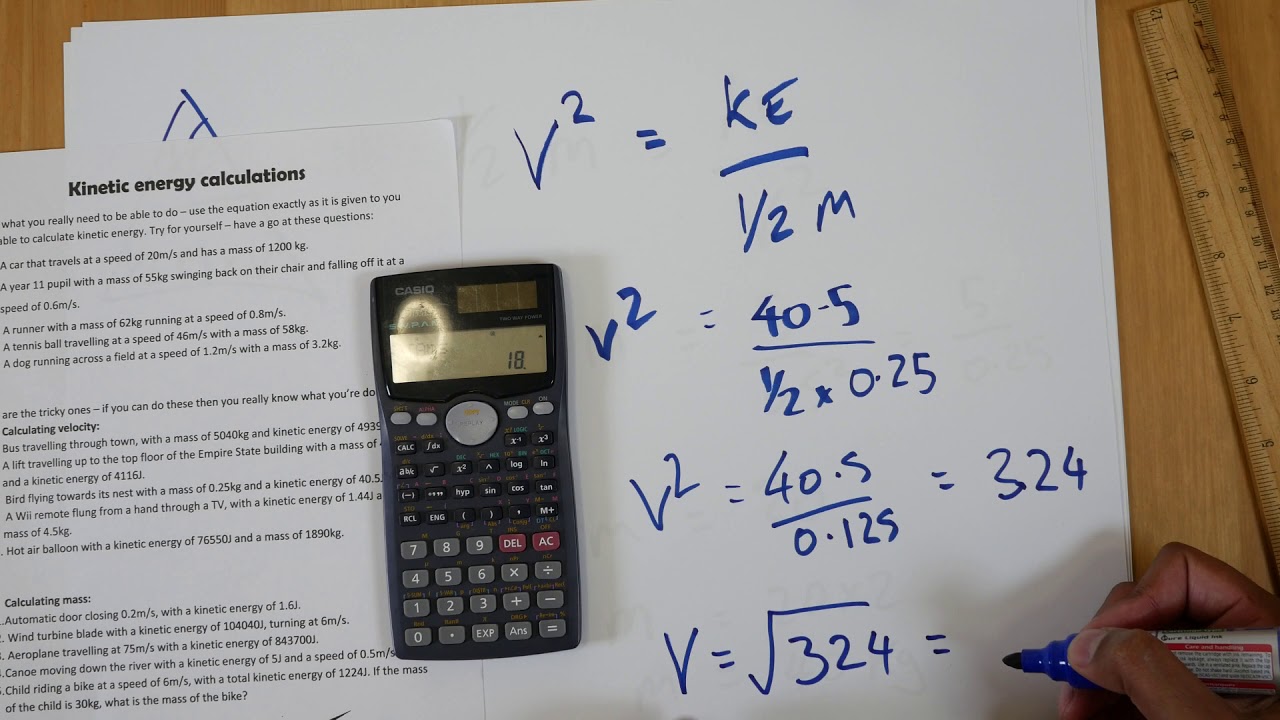 Kinetic energy calculations
what you really need to be able to do – use the equation exactly as it is given to you
able to calculate kinetic energy. Try for yourself – have a go at these questions:
A car that travels at a speed of 20m/s and has a mass of 1200 kg.
A year 11 pupil with a mass of 55kg swinging back on their chair and falling off it at a
speed of 0.6m/s.
A runner with a mass of 62kg running at a speed of 0.8m/s.
A tennis ball travelling at a speed of 46m/s with a mass of 58kg.
A dog running across a field at a speed of 1.2m/s with a mass of 3.2kg.
are the tricky ones – if you can do these then you really know what you're do
Calculating velocity:
Bus travelling through town, with a mass of 5040kg and kinetic energy of 4939
A lift travelling up to the top floor of the Empire State building with a mass of
and a kinetic energy of 4116J.
Bird flying towards its nest with a mass of 0.25kg and a kinetic energy of 40.5J
A Wii remote flung from a hand through a TV, with a kinetic energy of 1.44J a
mass of 4.5kg.
. Hot air balloon with a kinetic energy of 76550J and a mass of 1890kg.
Calculating mass:
1.Automatic door closing 0.2m/s, with a kinetic energy of 1.6J.
2. Wind turbine blade with a kinetic energy of 104040J, turning at 6m/s.
. Aeroplane travelling at 75m/s with a kinetic energy of 843700J.
.Canoe moving down the river with a kinetic energy of 5J and a speed of 0.5m/s
.Child riding a bike at a speed of 6m/s, with a total kinetic energy of 1224J. If the mass
of the child is 30kg, what is the mass of the bike?
CASIO
TWO WAY POWER
18.
SHIFT ALPHA MODE CLR ON
CALC ∫dx x⁻¹ x³
ab/c √ x² ^ log ln
(−) °'" hyp sin cos tan
RCL ENG ( ) , M+
7 8 9 DEL AC
4 5 6 × ÷
1 2 3 + −
0 . EXP Ans =
V² = KE
1/2 M
V² = 40.5
1/2 x 0.25
V² = 40.5 = 324
0.125
V = √324 =
Pure Liquid Ink
Care and handling
12
11
10
9
8
7